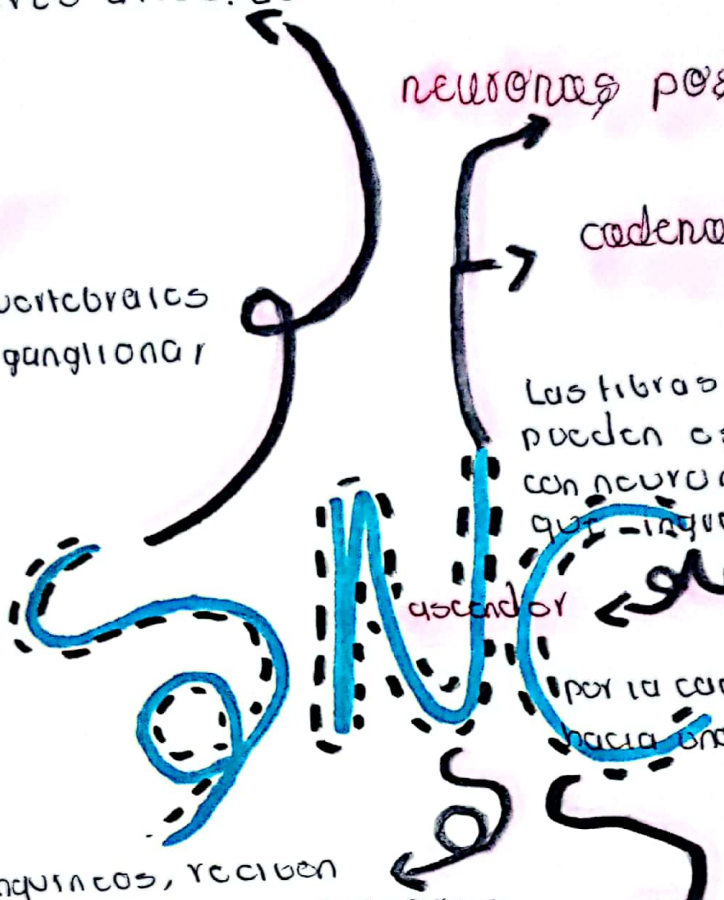 neuronas pos
cadena
vertebrales
ganglionar
Las fibras
pueden es
con neuro
que inqu
ascendor
por la ca
hacia una
SNC
nquineos, reciben